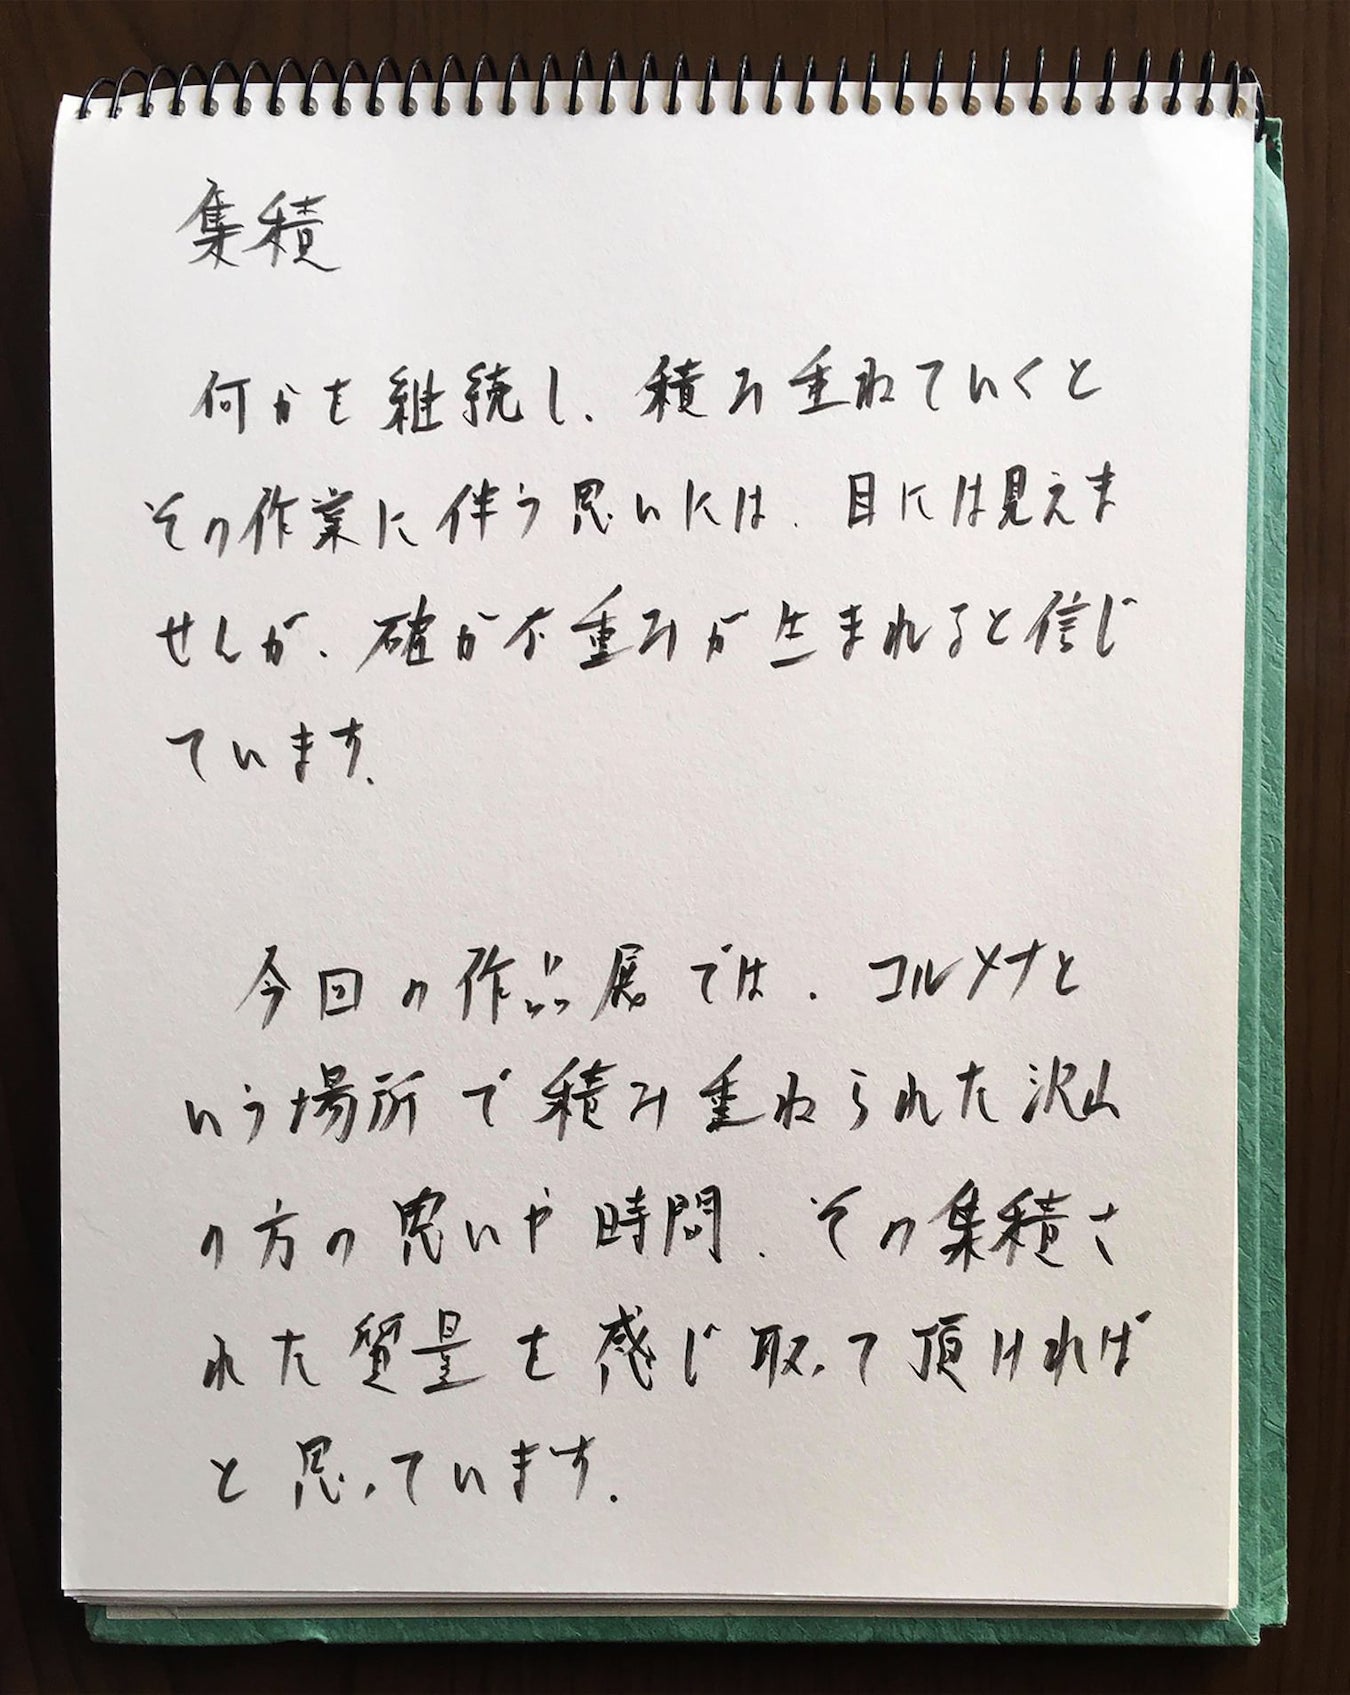 集積
何かを継続し、積み重ねていくと
その作業に伴う思いには、目には見えま
せんが、確かな重みが生まれると信じ
ています。
今回の作品展では、コルメナと
いう場所で積み重ねられた沢山
の方の思いや時間、その集積さ
れた質量を感じ取って頂ければ
と思っています。